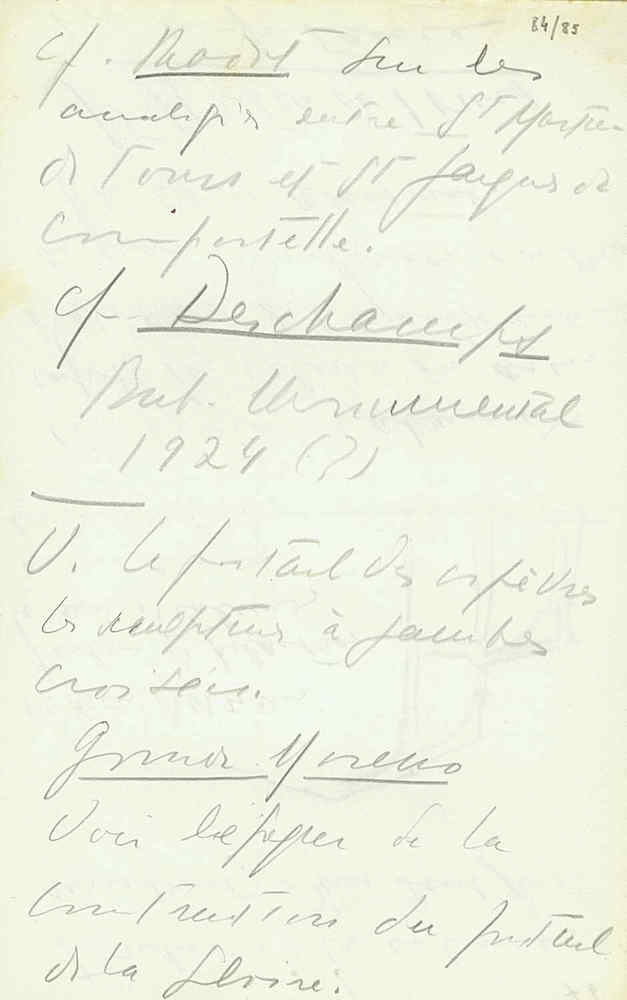 84/85
cf. sur les
analogies entre St Martin
de Tours et St Jacques de
Compostelle.
cf. Deschamps
Bul. Monumental
1924 (?)
V. le portail des orfèvres
les sculptures à jambes
croisées.
Gomez Moreno
Voir l'époque de la
construction du portail
de la Gloire.